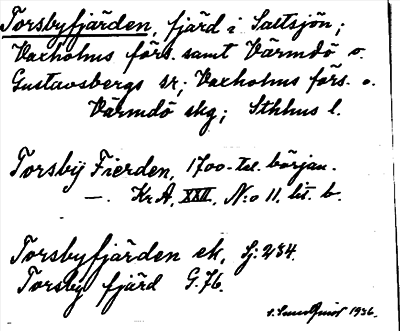 Torsbyfjärden, fjärd i Saltsjön;
Vaxholms förs. samt Värmdö o.
Gustavsbergs sr; Vaxholms förs. o.
Värmdö skg; Sthlms l.
Torsbÿ Fierden, 1700-tal. början.
—. Kr.A. XXII, N:o 11, lit. b.
Torsbyfjärden ek, Sj: 234.
Torsby fjärd G. 76.
1936.